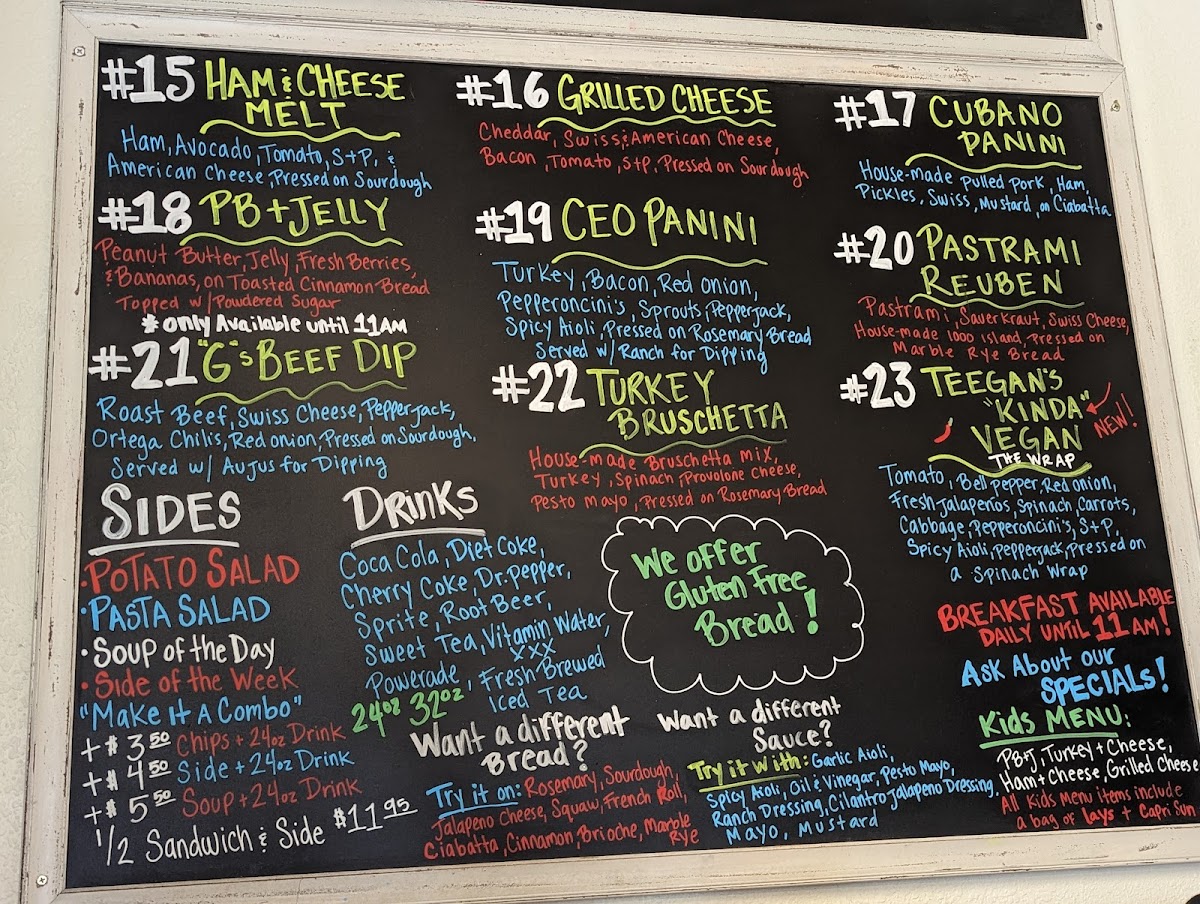 #15 HAM & CHEESE
MELT
Ham, Avocado, Tomato, S+P, &
American Cheese, Pressed on Sourdough
#16 GRILLED CHEESE
Cheddar, Swiss & American Cheese,
Bacon, Tomato, S+P, Pressed on Sourdough
#17 CUBANO
PANINI
House-made pulled pork, Ham,
Pickles, Swiss, Mustard, on Ciabatta
#18 PB+JELLY
Peanut Butter, Jelly, Fresh Berries,
& Bananas, on Toasted Cinnamon Bread
Topped w/ Powdered Sugar
* only Available until 11AM
#19 CEO PANINI
Turkey, Bacon, Red onion,
Pepperoncini's, Sprouts, Pepperjack,
Spicy Aioli, Pressed on Rosemary Bread
Served w/ Ranch for Dipping
#20 PASTRAMI
REUBEN
Pastrami, Sauerkraut, Swiss Cheese,
House-made 1000 island, Pressed on
Marble Rye Bread
#21 "G"s BEEF DIP
Roast Beef, Swiss Cheese, Pepperjack,
Ortega Chilis, Red onion, Pressed on Sourdough,
Served w/ Aujus for Dipping
#22 TURKEY
BRUSCHETTA
House-made Bruschetta mix,
Turkey, Spinach, Provolone Cheese,
Pesto mayo, Pressed on Rosemary Bread
#23 TEEGAN'S
"KINDA"
NEW!
VEGAN
THE WRAP
Tomato, Bell pepper, Red onion,
Fresh Jalapeños, Spinach, Carrots,
Cabbage, Pepperoncini's, S+P,
Spicy Aioli, pepperjack, Pressed on
a Spinach Wrap
SIDES
· POTATO SALAD
· PASTA SALAD
· Soup of the Day
· Side of the Week
"Make It A Combo"
+ $3.50 Chips + 24oz Drink
+ $4.50 Side + 24oz Drink
+ $5.50 Soup + 24oz Drink
1/2 Sandwich & Side $11.95
Drinks
Coca Cola, Diet Coke,
Cherry Coke, Dr. Pepper,
Sprite, Root Beer,
Sweet Tea, Vitamin Water,
XXX
Powerade, Fresh Brewed
Iced Tea
24oz 32oz
We offer
Gluten Free
Bread!
Want a different
Bread?
Try it on: Rosemary, Sourdough,
Jalapeno Cheese, Squaw, French Roll,
Ciabatta, Cinnamon, Brioche, Marble
Rye
Want a different
Sauce?
Try it with: Garlic Aioli,
Spicy Aioli, Oil & Vinegar, Pesto Mayo,
Ranch Dressing, Cilantro Jalapeno Dressing,
Mayo, Mustard
BREAKFAST AVAILABLE
DAILY UNTIL 11AM!
ASK ABOUT our
SPECIALS!
Kids MENU:
PB+J, Turkey + Cheese,
Ham + Cheese, Grilled Cheese
All Kids Menu items include
a bag of Lays + Capri Sun